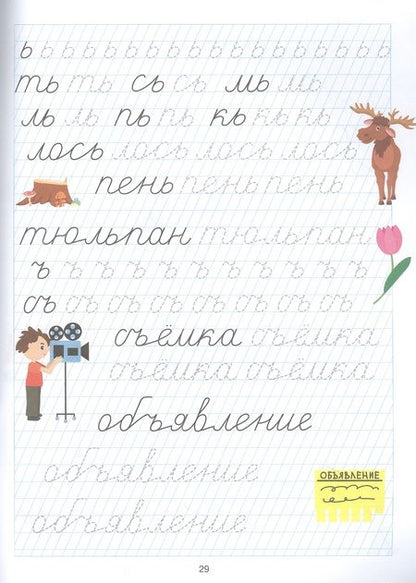 ь ь ь ь ь ь ь ь ь ь ь ь ь ь ь ь ь ь
ть ть сь сь мь мь
ль ль пь пь кь кь кь
лось лось лось лось
пень пень пень
тюльпан тюльпан
ъ ъ ъ ъ ъ ъ ъ ъ ъ ъ
съ съ съ съ съ съ съ съ
съёмка съёмка
съёмка съёмка
объявление
объявление
ОБЪЯВЛЕНИЕ
объявление
29